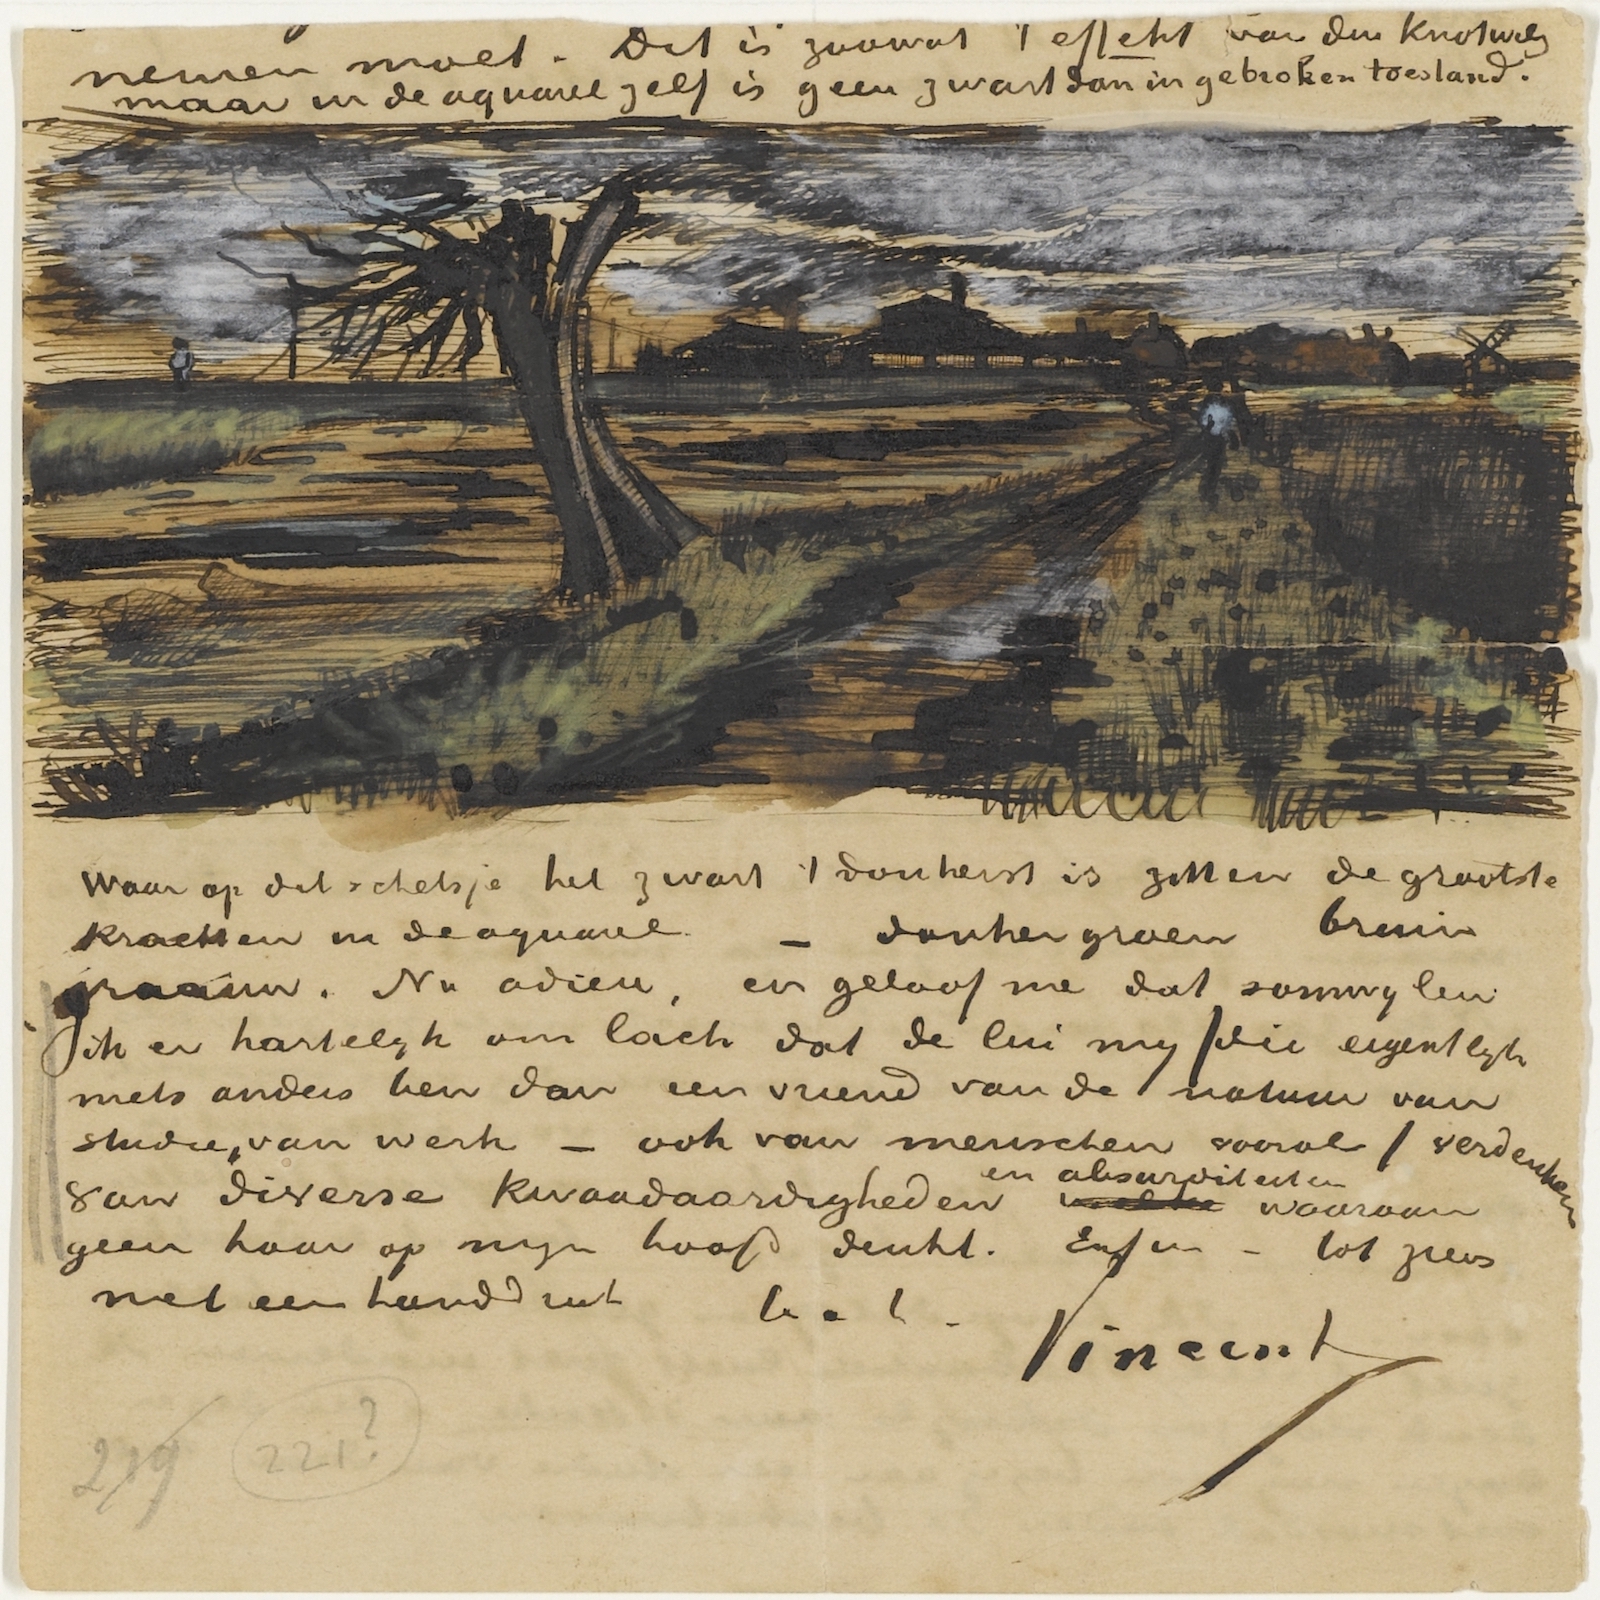 nemen moet. Dit is zoowat 't effekt van den Knotwilg
maar in de aquarel zelf is geen zwart dan in gebroken toestand.
Waar op dit schetsje het zwart 't donkerst is zitten de grootste
krachten in de aquarel – donkergroen bruin
graauw. Nu adieu, en geloof me dat somwylen
ik er hartelyk om lach dat de lui my / die eigentlyk
niets anders ben dan een vriend van de natuur van
studie, van werk – ook van menschen vooral / verdenken
en absurditeiten
van diverse kwaadaardigheden welke waaraan
geen haar op myn hoofd denkt. Enfin – tot ziens
met een handdruk t. à. t.
Vincent
219 221?